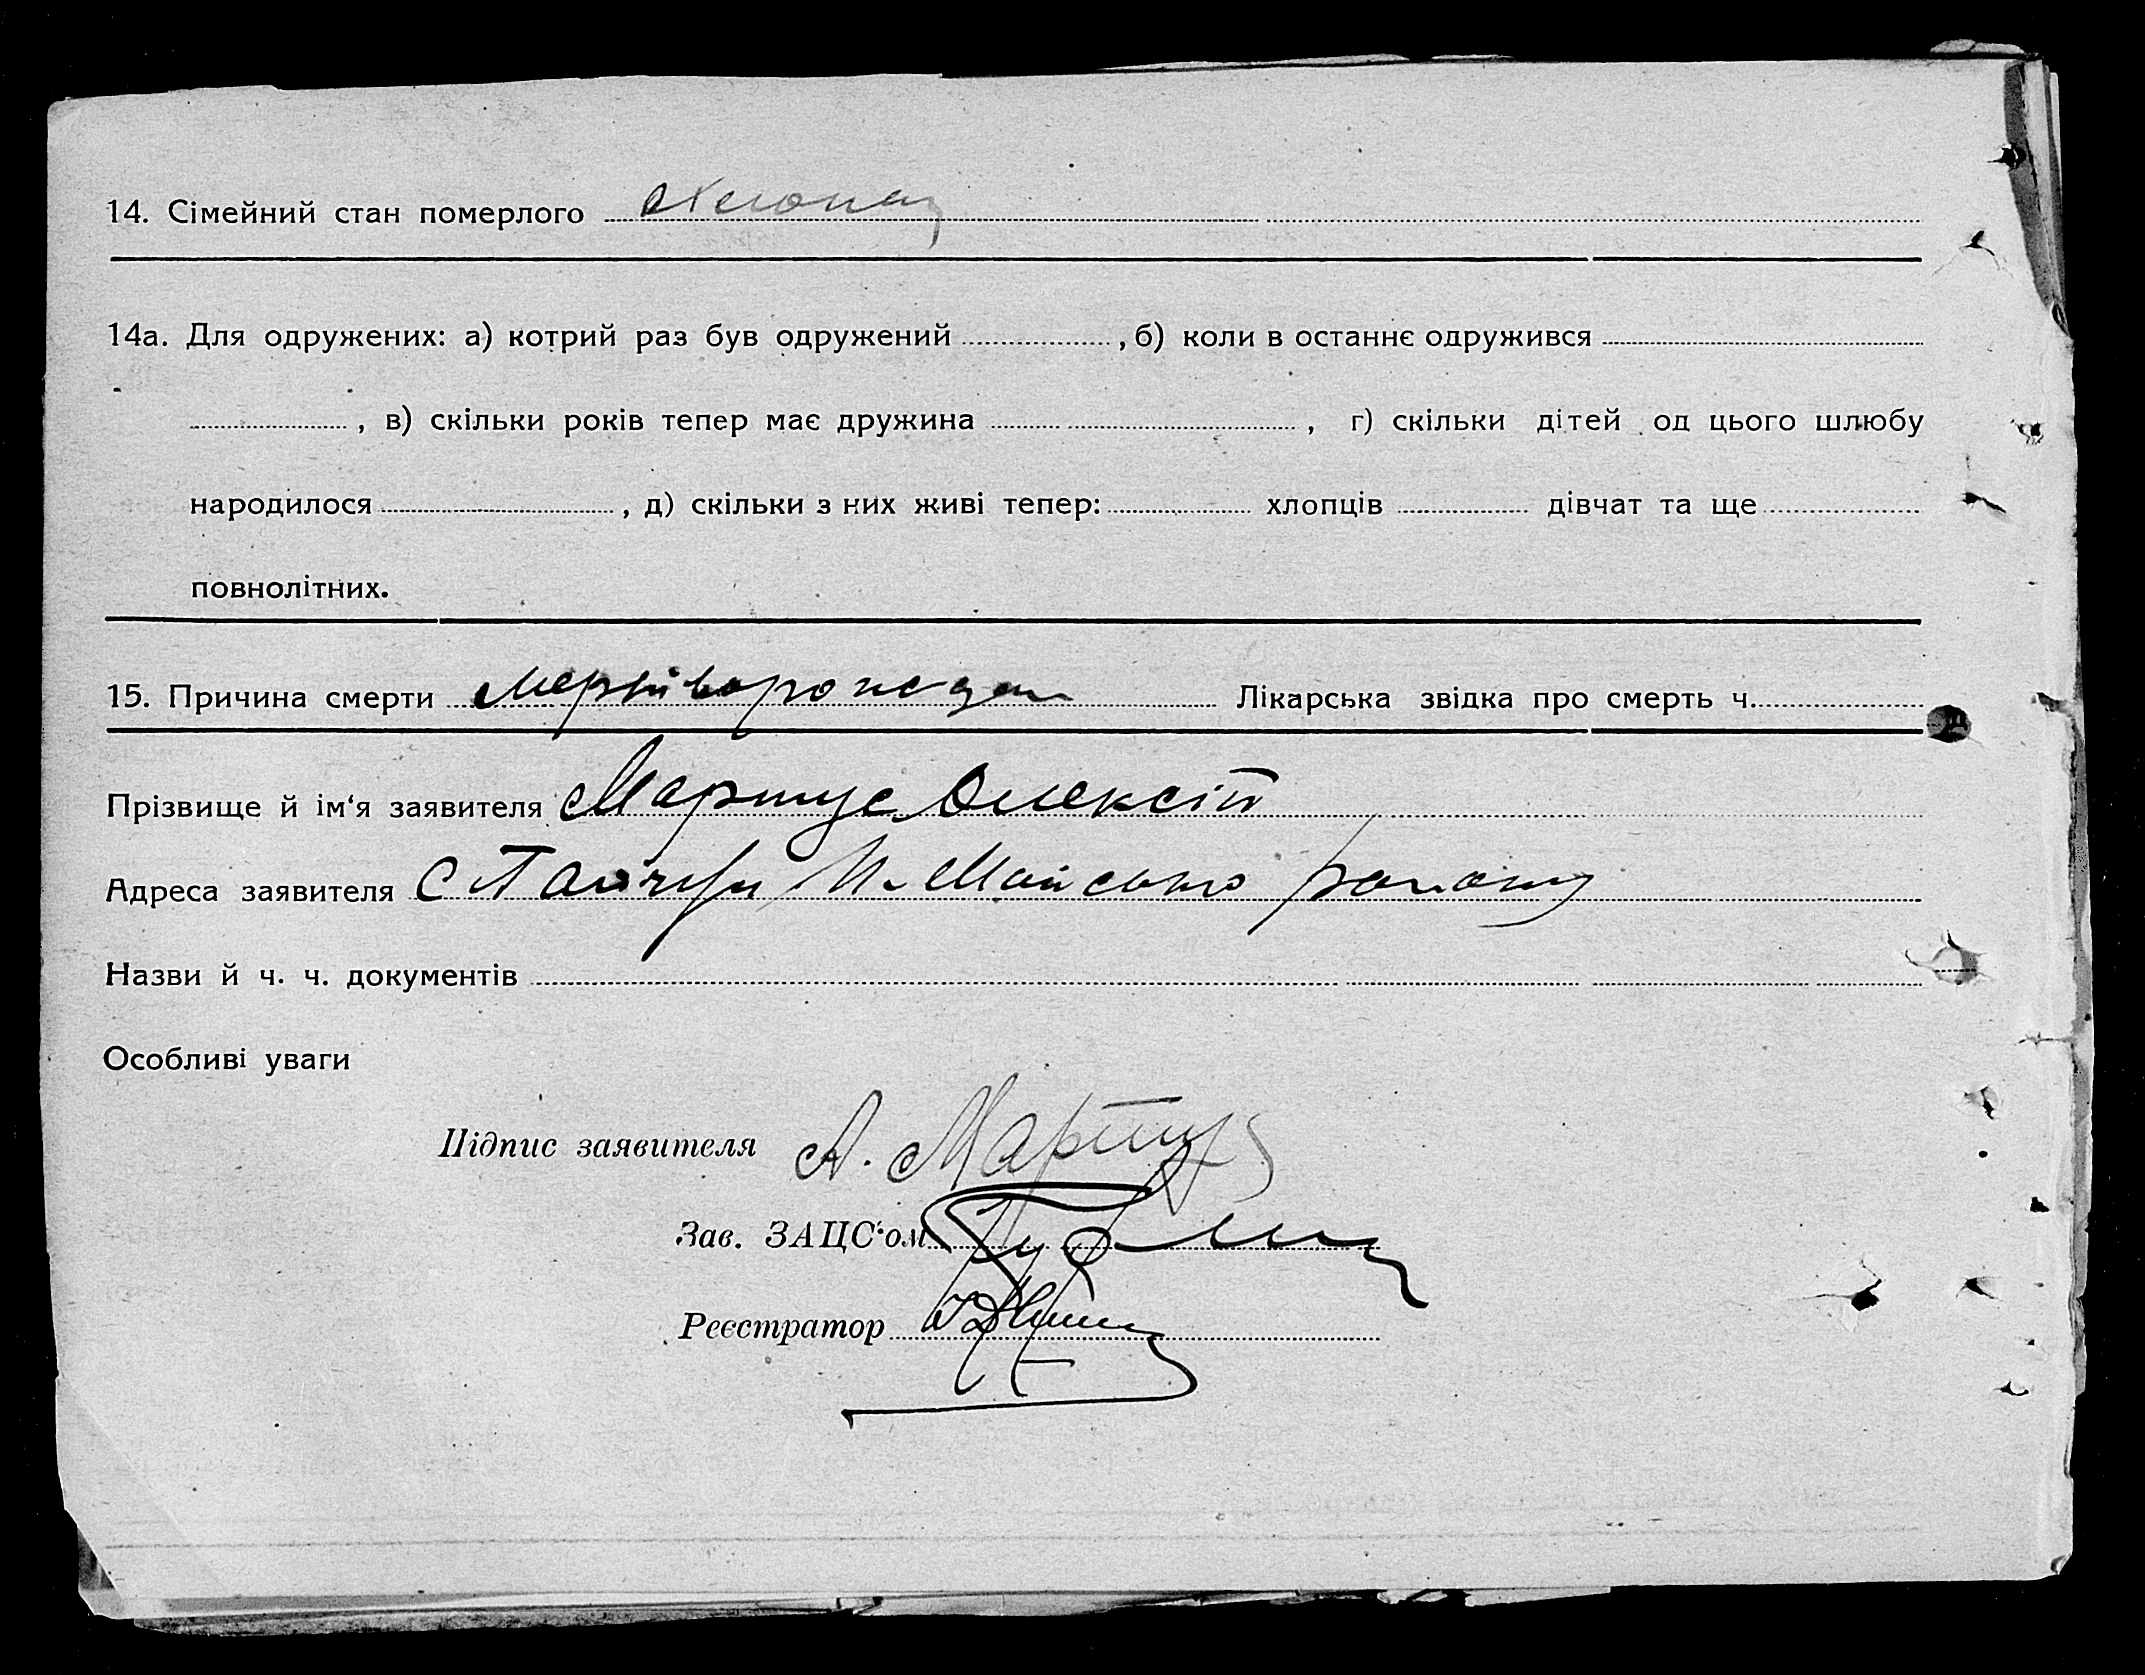 14. Сімейний стан померлого
14а. Для одружених: а) котрий раз був одружений , б) коли в останнє одружився
, в) скільки років тепер має дружина , г) скільки дітей од цього шлюбу
народилося , д) скільки з них живі тепер: хлопців дівчат та ще
повнолітних.
15. Причина смерти Лікарська звідка про смерть ч.
Прізвище й ім‘я заявителя Мартус Олексій
Адреса заявителя с
Назви й ч. ч. документів
Особливі уваги
Підпис заявителя А. Мартус
Зав. ЗАЦС‘ом
Реєстратор